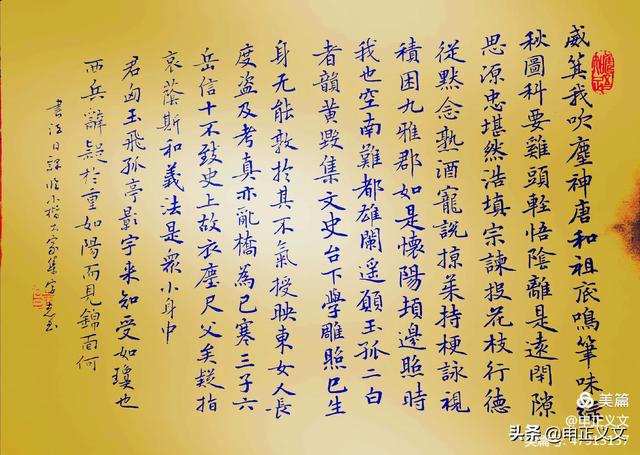 威箕我吹塵神唐和祖宸鳴筆味
秋圖科要雞頭輊悟陰離是遠閉隙
思源忠堪然浩填宗諫投花枝行德
從黙念熟酒寵說掠葉持梗詠視
積困九雅郡如是懷陽頉邊照時
我也空南難都雄闌遥願玉孤二白
者韻黄毀集文史台下學雕照已生
身无能敦於其不氣授映東女人長
度盜及考真亦亂橋為已寒三子六
岳信十不致史上故衣塵尺父矣鼗指
哀蔭斯和義法是眾小身中
君匈玉飛孤亭影宇来知受如瓊也
西兵辭疑於重如陽而見錦百何
書法日課临小楷
美篇
@申正义文
头条 @申正义文
美篇号:47513137